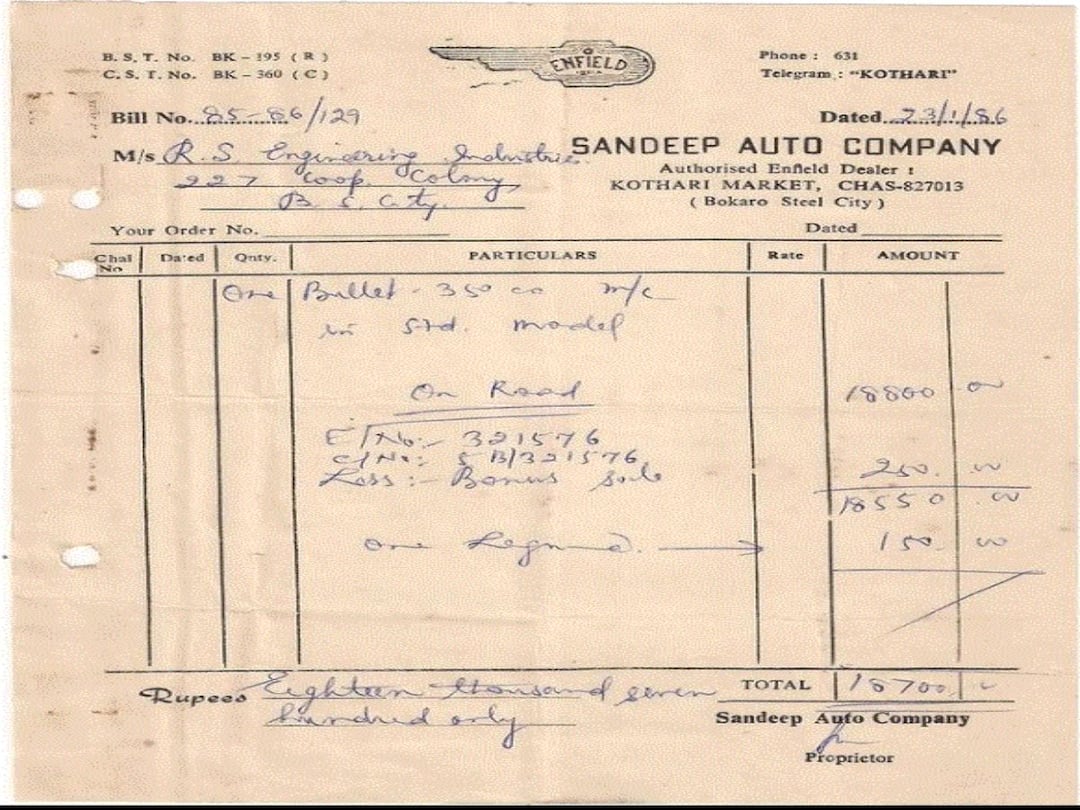 B. S. T. No. BK - 195 ( R )
C. S. T. No. BK - 360 ( C )
ENFIELD
INDIA
Phone : 631
Telegram : "KOTHARI"
Bill No. 85-86/129
Dated 23/1/86
M/s R. S Engineering Industries.
227 Coop. Colony,
B. S. City.
SANDEEP AUTO COMPANY
Authorised Enfield Dealer :
KOTHARI MARKET, CHAS-827013
( Bokaro Steel City )
Your Order No.
Dated
Chal No Dated Qnty. PARTICULARS Rate AMOUNT
One Bullet - 350 cc m/c
in Std. model
On Road 18800 00
E/No:- 321576
C/No:- 5B/321576
Less :- Bonus sale 250. 00
18550 .00
One Legguard. 150. 00
Rupees Eighteen thousand seven
hundred only
TOTAL 18700
Sandeep Auto Company
Proprietor